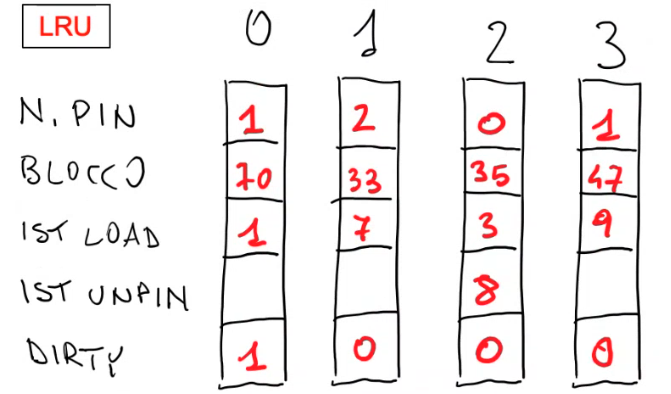 LRU
0 1 2 3
N. PIN 1 2 0 1
BLOCCO 70 33 35 47
IST LOAD 1 7 3 9
IST UNPIN 8
DIRTY 1 0 0 0